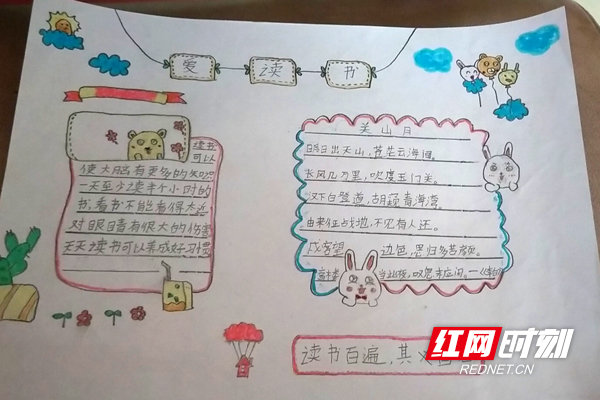 爱读书
读书
可以
使大脑有更多的知识
一天至少读半个小时的
书,看书不能看得太近
对眼睛有很大的伤害
天天读书可以养成好习惯
关山月
明月出天山,苍茫云海间。
长风几万里,吹度玉门关。
汉下白登道,胡窥青海湾。
由来征战地,不见有人还。
戍客望边色,思归多苦颜。
高楼当此夜,叹息未应闲。
读书百遍,其义
红网时刻
REDNET.CN